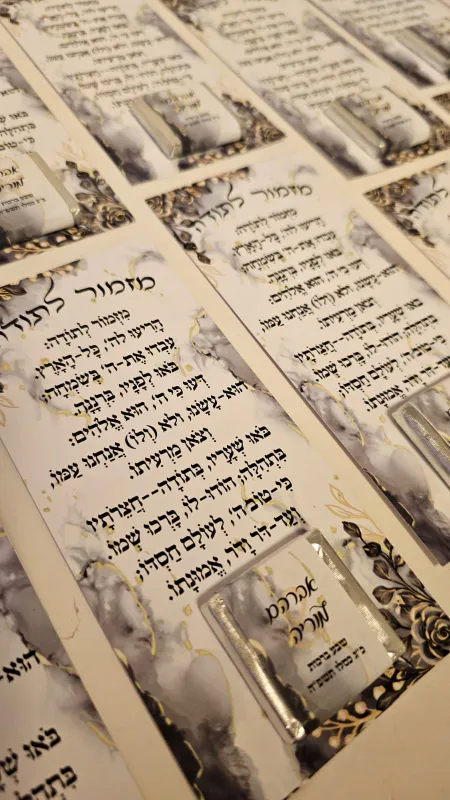 מזמור לתודה
מִזְמוֹר לְתוֹדָה:
הָרִיעוּ לַה', כָּל-הָאָרֶץ.
עִבְדוּ אֶת-ה' בְּשִׂמְחָה;
בֹּאוּ לְפָנָיו, בִּרְנָנָה.
דְּעוּ כִּי ה', הוּא אֱלֹהִים:
הוּא-עָשָׂנוּ, וְלֹא (וְלוֹ) אֲנַחְנוּ עַמּוֹ,
וְצֹאן מַרְעִיתוֹ.
בֹּאוּ שְׁעָרָיו, בְּתוֹדָה--חֲצֵרֹתָיו
בִּתְהִלָּה; הוֹדוּ-לוֹ, בָּרְכוּ שְׁמוֹ.
כִּי-טוֹב ה', לְעוֹלָם חַסְדּוֹ;
וְעַד-דֹּר וָדֹר, אֱמוּנָתוֹ.
אברהם
מוריה
שבע ברכות
כ״ג כסלו תשפ״ה